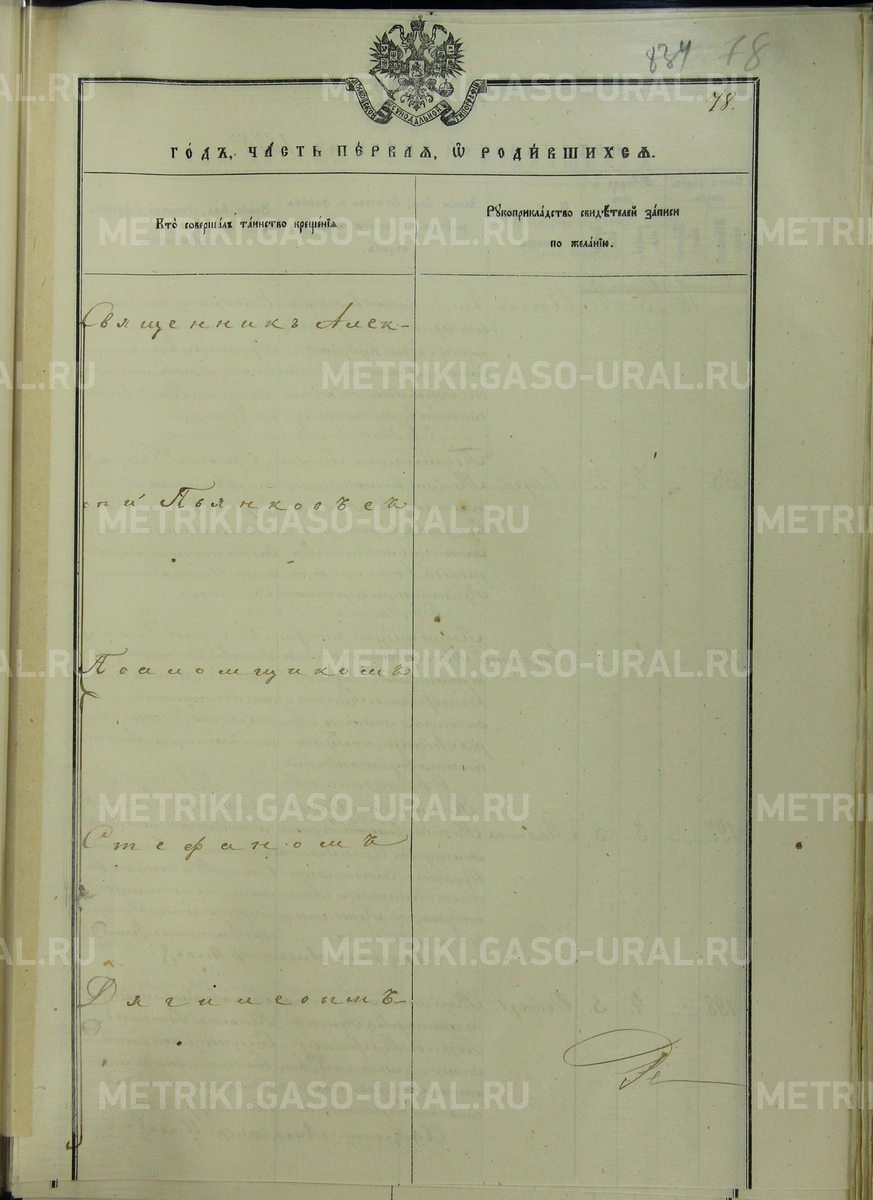 834 78
78.
МОСКОВСКОЙ СѴНОДАЛЬНОЙ ТИПОГРАФІИ
ГО́ДЪ, ЧА́СТЬ ПЕ́РВАЯ, Ѽ РОДИ́ВШИХСЯ.
Кто̀ соверша́лъ та́инство креще́нїя.
Рꙋкоприкла́дство свидѣ́телей за́писи
по жела́нїю.
Священникъ Алек-
сій Пьянковъ съ
Псаломщикомъ
Стефаномъ
Дягилевымъ
METRIKI.GASO-URAL.RU